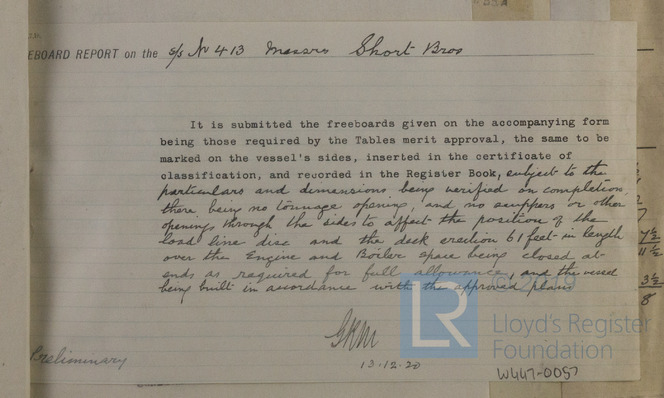 EBOARD REPORT on the s/s No 413 Messrs Short Bros
It is submitted the freeboards given on the accompanying form
being those required by the Tables merit approval, the same to be
marked on the vessel's sides, inserted in the certificate of
classification, and recorded in the Register Book, subject to the
particulars and dimensions being verified on completion,
there being no tonnage opening, and no scuppers or other
openings through the sides to affect the position of the
load line disc and the deck erection 61 feet in length
over the Engine and Boiler space being closed at
ends as required for full allowance, and the vessel
being built in accordance with the approved plans
13.12.20
Preliminary
7½
11½
3½
8
© 2019
LR
Lloyd's Register
Foundation
W447-0057